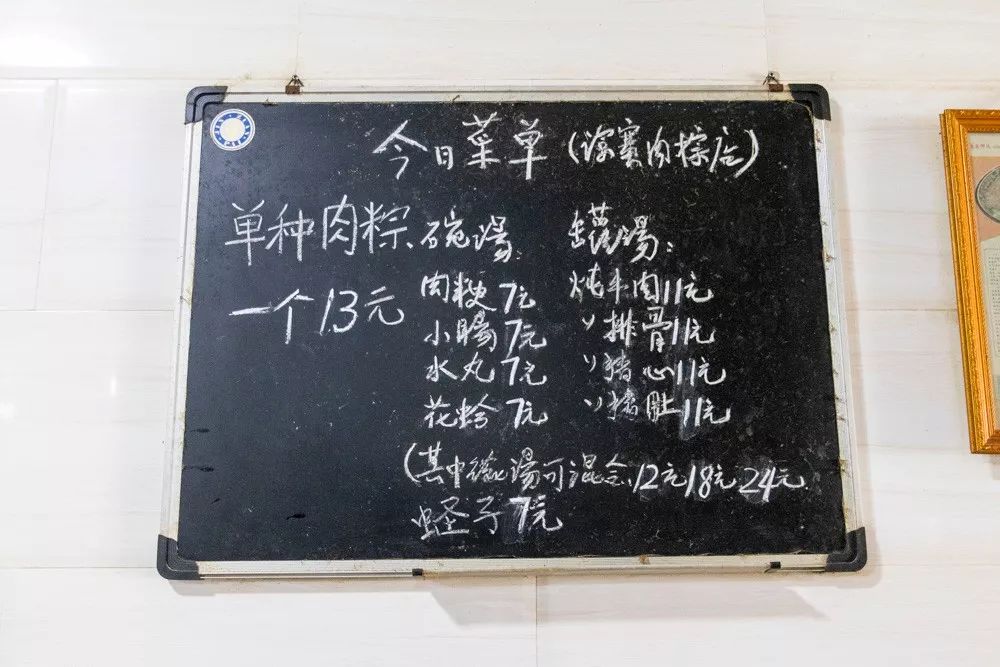 今日菜单(谚赛肉粽店)
单种肉粽
一个13元
碗汤:
肉粳7元
小肠7元
水丸7元
花蛤7元
罐汤:
炖牛肉11元
〃排骨11元
〃猪心11元
〃猪肚11元
(其中碗汤可混合,12元18元24元
蛏子7元